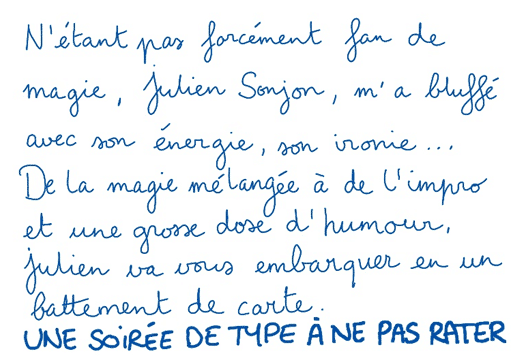 N'étant pas forcément fan de
magie, Julien Sonjon, m'a bluffé
avec son énergie, son ironie...
De la magie mélangée à de l'impro
et une grosse dose d'humour,
Julien va vous embarquer en un
battement de carte.
UNE SOIRÉE DE TYPE À NE PAS RATER